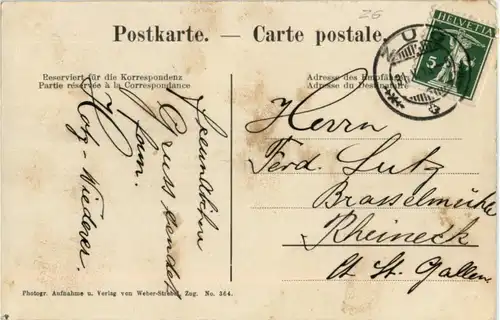 26
Postkarte. — Carte postale.
HELVETIA
5
ZUG
Reserviert für die Korrespondenz
Partie réservée à la Correspondance
Adresse des Empfängers
Adresse du Destinataire
Freundlichen
Gruss sendet
Fam.
Herrn
Ferd. Lutz
Brasselmühle
Rheineck
Ct. St. Gallen
Photogr. Aufnahme u. Verlag von Weber-Strebel, Zug. No. 364.